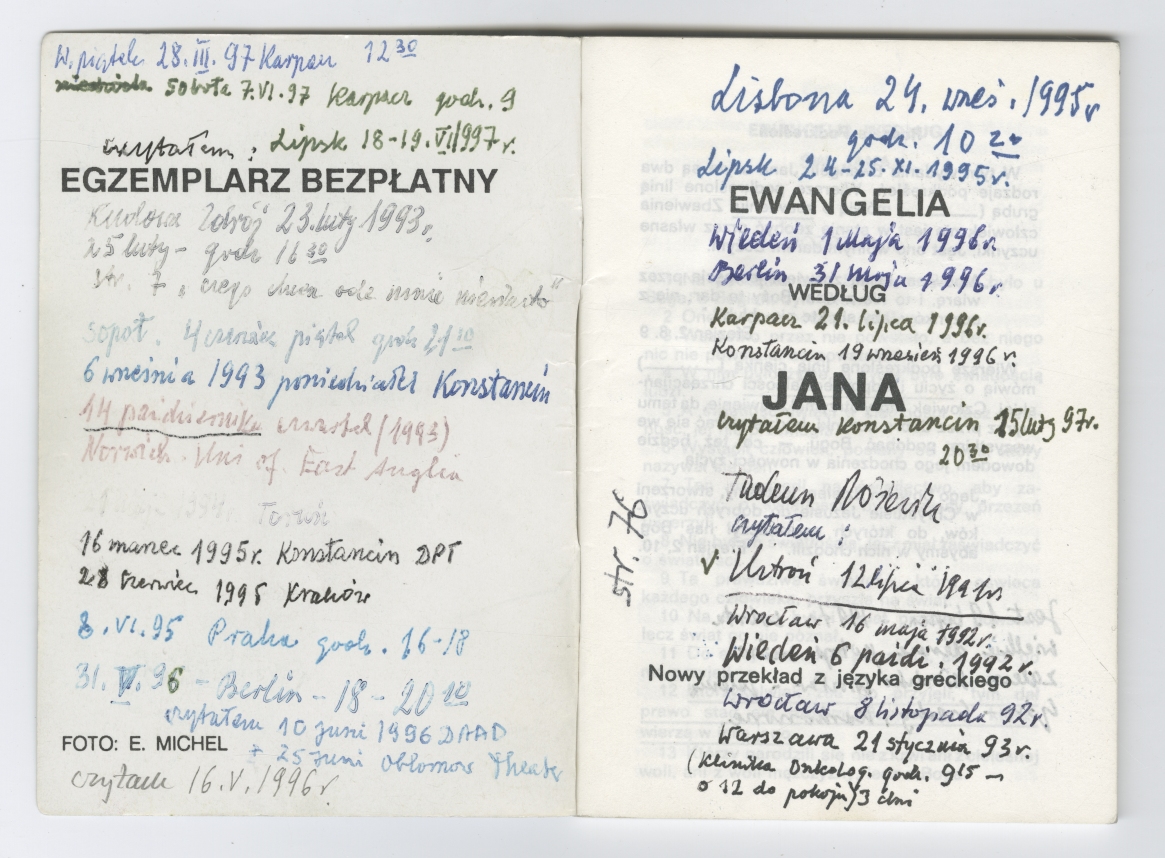 W. piątek 28. III. 97 Karpacz 12 30
niedziela sobota 7. VI. 97 Karpacz godz. 9
czytałem : Lipsk 18-19. VI 1997 r.
EGZEMPLARZ BEZPŁATNY
Kudowa Zdrój 23 luty 1993 r.
25 luty - godz 16 30
str. 7 „czego chcesz ode mnie niewiasto"
Sopot. 4 czerwiec piątek godz 21 30
6 września 1993 poniedziałek Konstancin
14 październik czwartek (1993)
Norwich. Uni of. East Anglia
21 maja 1994. Toruń
16 marzec 1995 r. Konstancin DPT
28 czerwiec 1995 Kraków
8. VI. 95 Praha godz. 16-18
31. V. 96 - Berlin - 18 - 20 10
czytałem 10 juni 1996 DAAD
+ 25 juni Oblomow Theater
FOTO: E. MICHEL
czytam 16. V. 1996 r
Lisbona 24. wrześ. 1995 r
godz. 10
Lipsk 24-25. XI. 1995 r.
EWANGELIA
Wiedeń 1 Maja 1996 r.
Berlin 31 Maja 1996 r.
WEDŁUG
Karpacz 21. lipca 1996 r.
Konstancin 19 wrzesień 1996 r.
JANA
czytałem Konstancin 15 luty 97 r.
20 30
Tadeusz Różewicz
czytałem :
str. 76
√ Ustroń 12 lipca 1991
Wrocław 16 maja 1992 r.
Wiedeń 6 paźdz. 1992 r.
Nowy przekład z języka greckiego
Wrocław 8 listopada 92 r.
Warszawa 21 stycznia 93 r.
(Klinika Onkolog. godz. 9 15 -
o 12 do pokoju) 3 dni